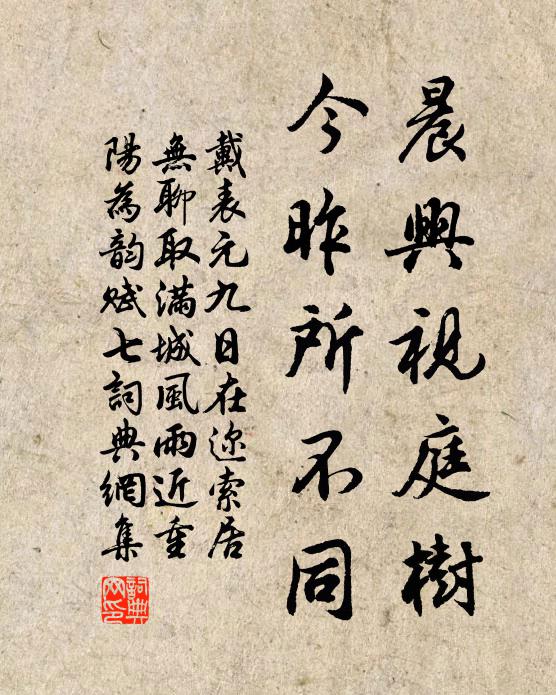 晨興視庭樹
今昨所不同
戴表元九日在迩索居
無聊取滿城風雨近重
陽為韵賦七詞典網集
詞典
网印